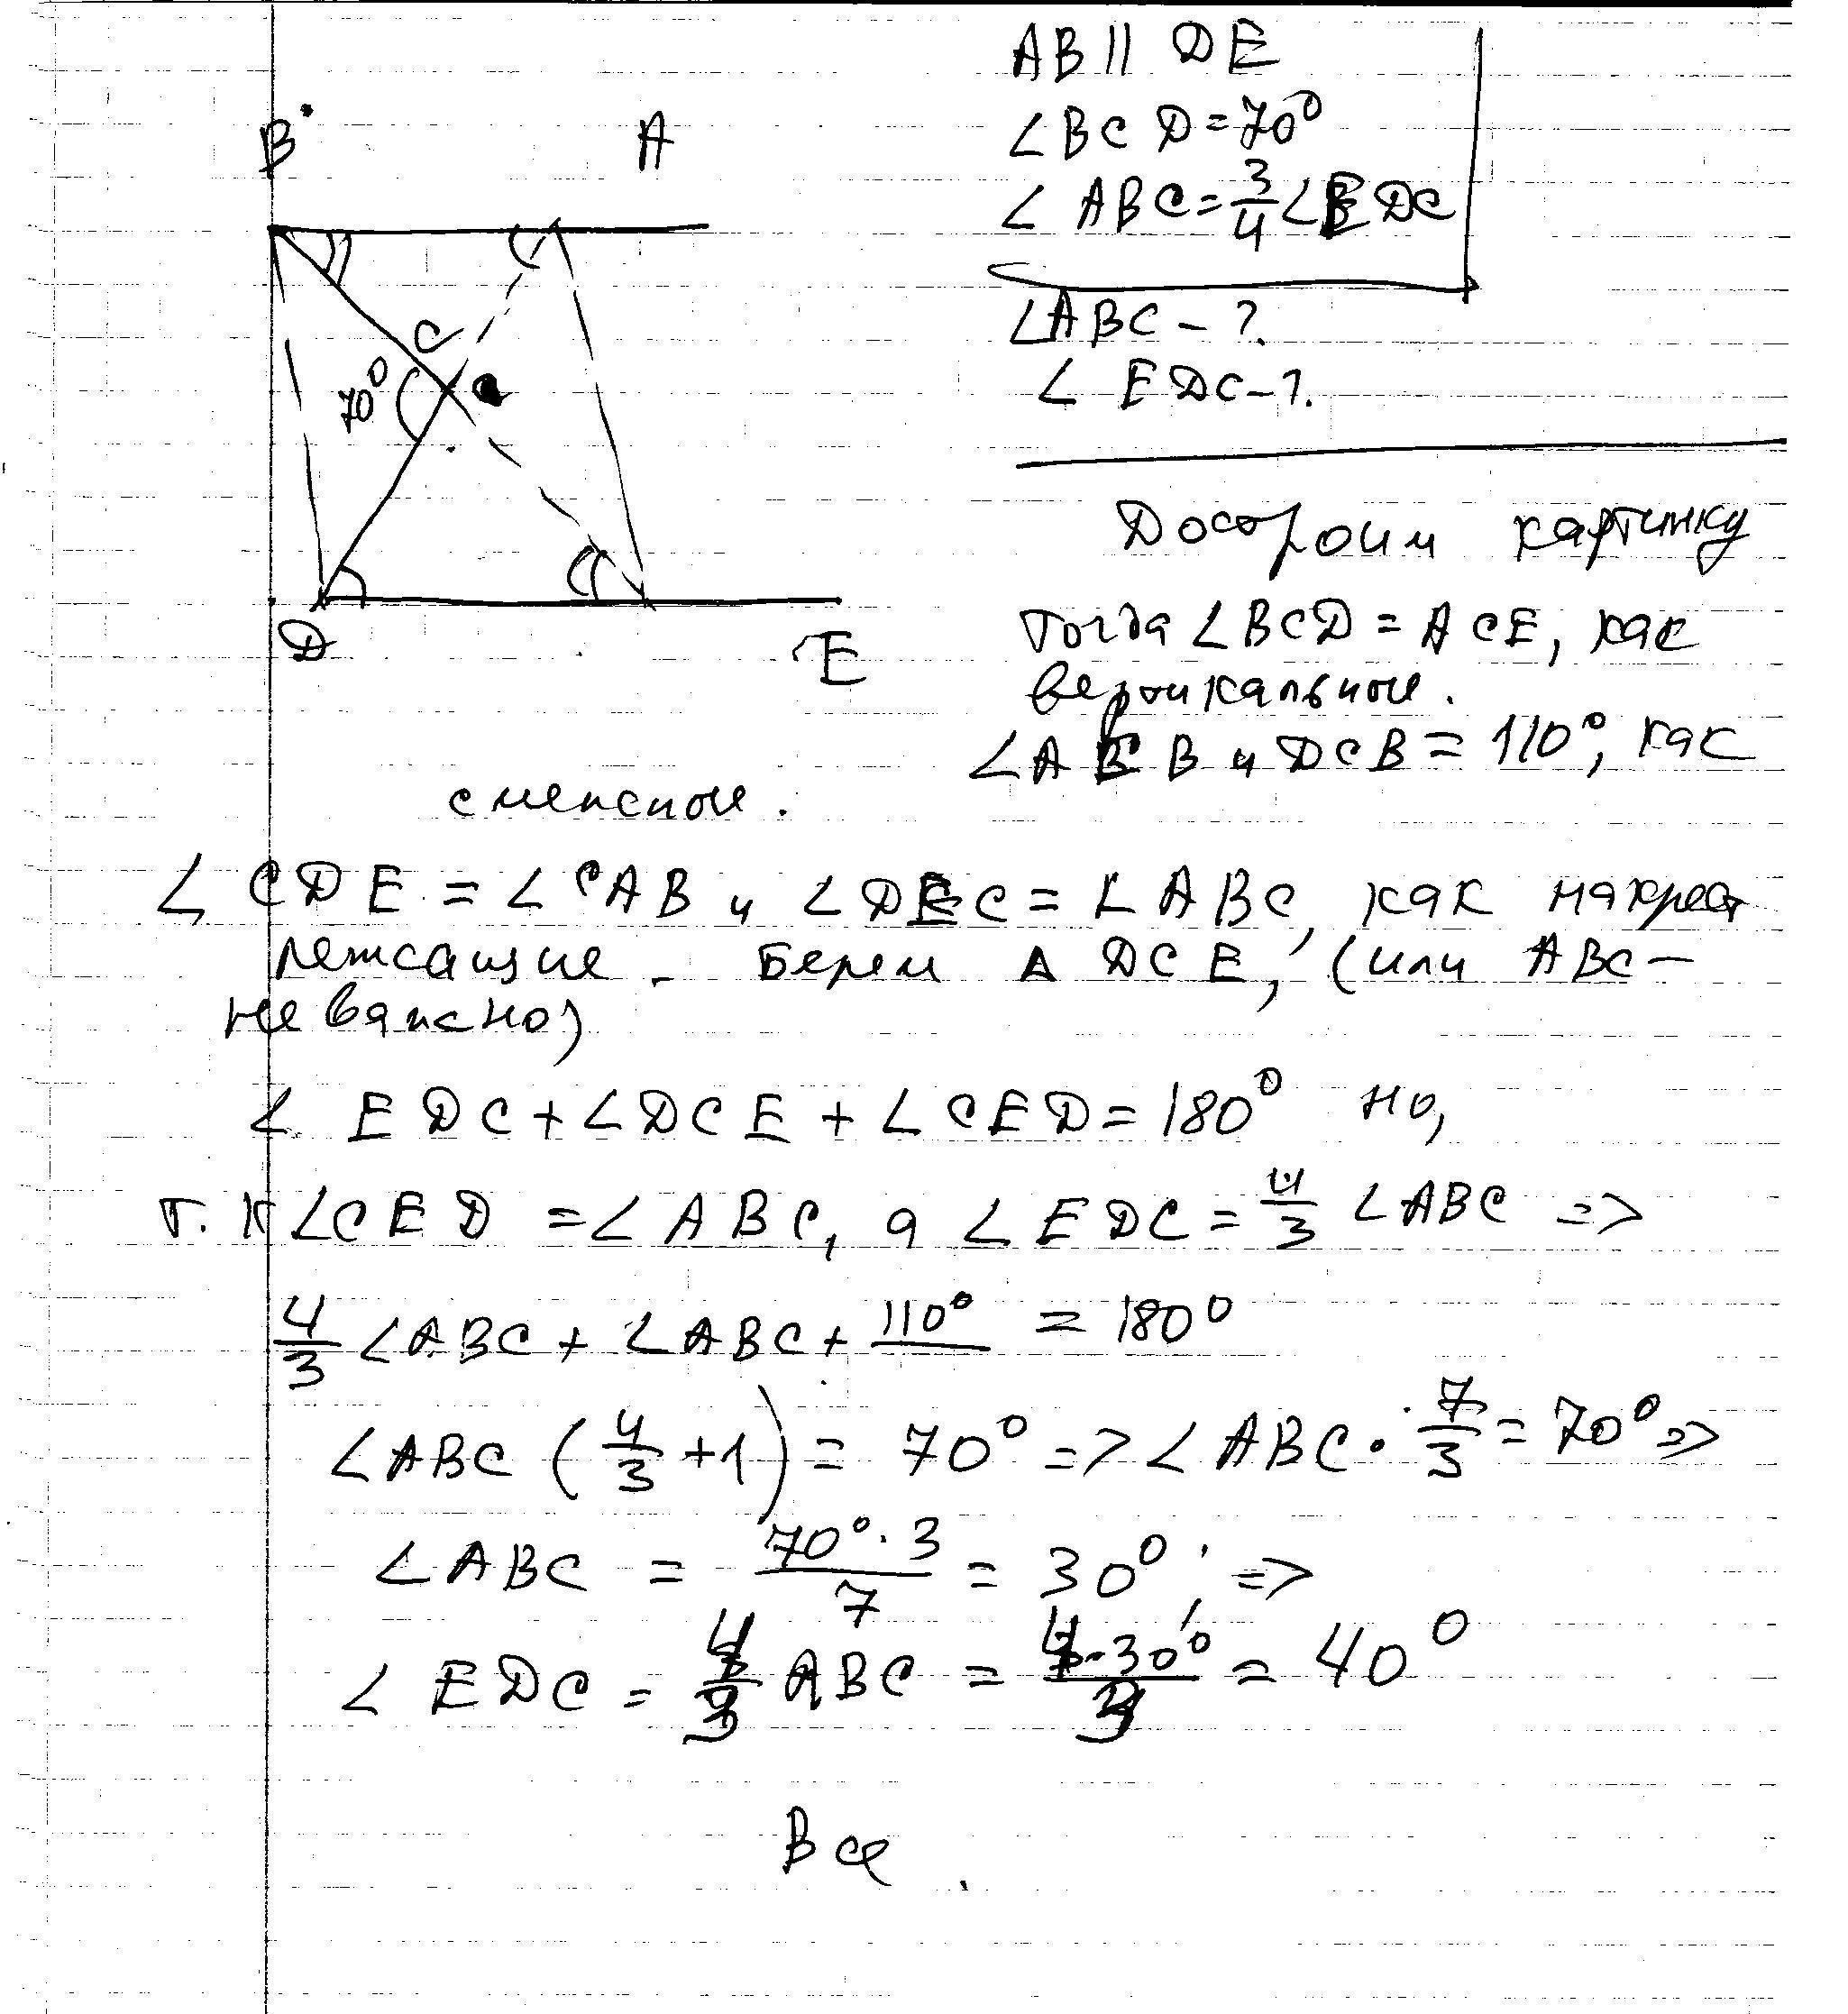 AB || DE
∠BCD = 70°
∠ABC = 3/4 ∠EDC
∠ABC - ?.
∠EDC - ?.
B
A
C
70°
D
E
Достроим картинку
тогда ∠BCD = ACE, как
вертикальные.
∠ACB и DCB = 110°, как
смежные.
∠CDE = ∠CAB и ∠DEC = ∠ABC, как накрест
лежащие. Берем Δ DCE, (или ABC -
не важно)
∠EDC + ∠DCE + ∠CED = 180° но,
т. к ∠CED = ∠ABC, а ∠EDC = 4/3 ∠ABC =>
4/3 ∠ABC + ∠ABC + 110° = 180°
∠ABC (4/3 + 1) = 70° => ∠ABC · 7/3 = 70° =>
∠ABC = 70° · 3 / 7 = 30° =>
∠EDC = 4/3 ABC = 4 · 30° / 3 = 40°
Все